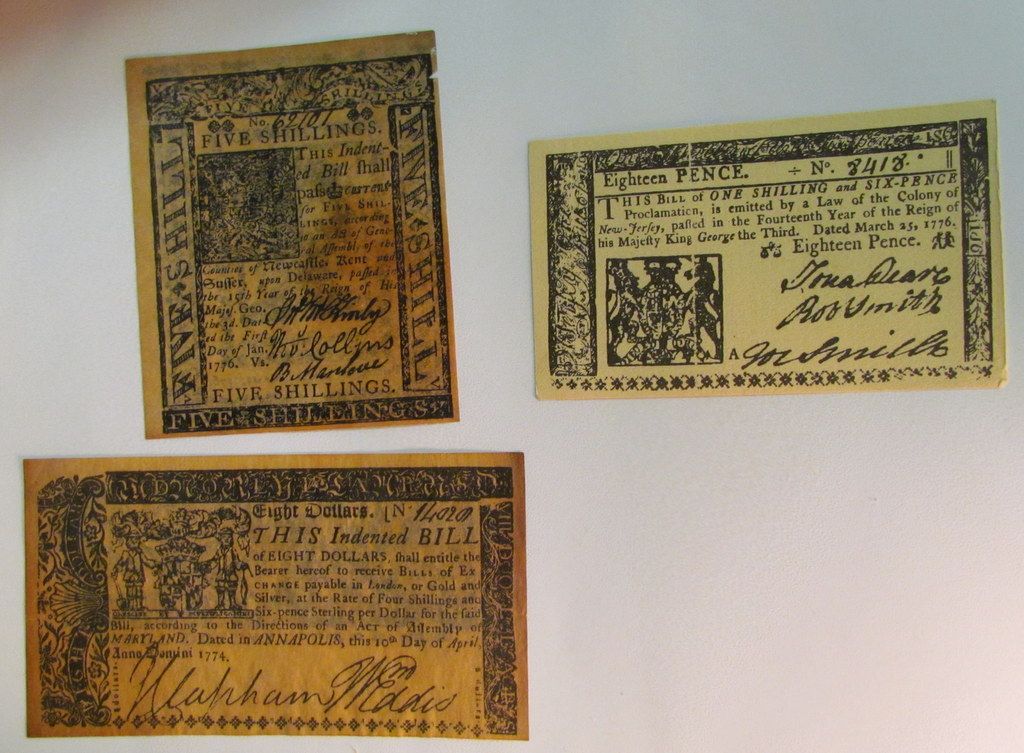 FIVE SHILLINGS
No. 62101
FIVE SHILLINGS.
THIS Indent-
ed Bill shall
pass
for FIVE SHIL-
LINGS, according
to an Act of Gene-
ral Assembly of the
Counties of Newcastle, Kent and
Sussex, upon Delaware, passed in
the 15th Year of the Reign of His
Majest. Geo.
the 3d. Dat-
ed the First
Day of Jan.
1776. Vs.
Collyns
B. Manlove
FIVE SHILLINGS.
FIVE SHILLINGS
FIVE SHILL
FIVE SHILL
Eighteen PENCE. ÷ No. 8418.
THIS BILL of ONE SHILLING and SIX-PENCE
Proclamation, is emitted by a Law of the Colony of
New-Jersey, passed in the Fourteenth Year of the Reign of
his Majesty King George the Third. Dated March 25, 1776.
Eighteen Pence.
Jona Deare
Rob Smith
A Jos Smith
Eight Dollars. [No
THIS Indented BILL
of EIGHT DOLLARS, shall entitle the
Bearer hereof to receive BILLS of EX
CHANGE payable in London, or Gold and
Silver, at the Rate of Four Shillings and
Six-pence Sterling per Dollar for the said
Bill, according to the Directions of an ACT of Assembly of
MARYLAND. Dated in ANNAPOLIS, this 10th Day of April,
Anno Domini 1774.
J Clapham Wm Eddis